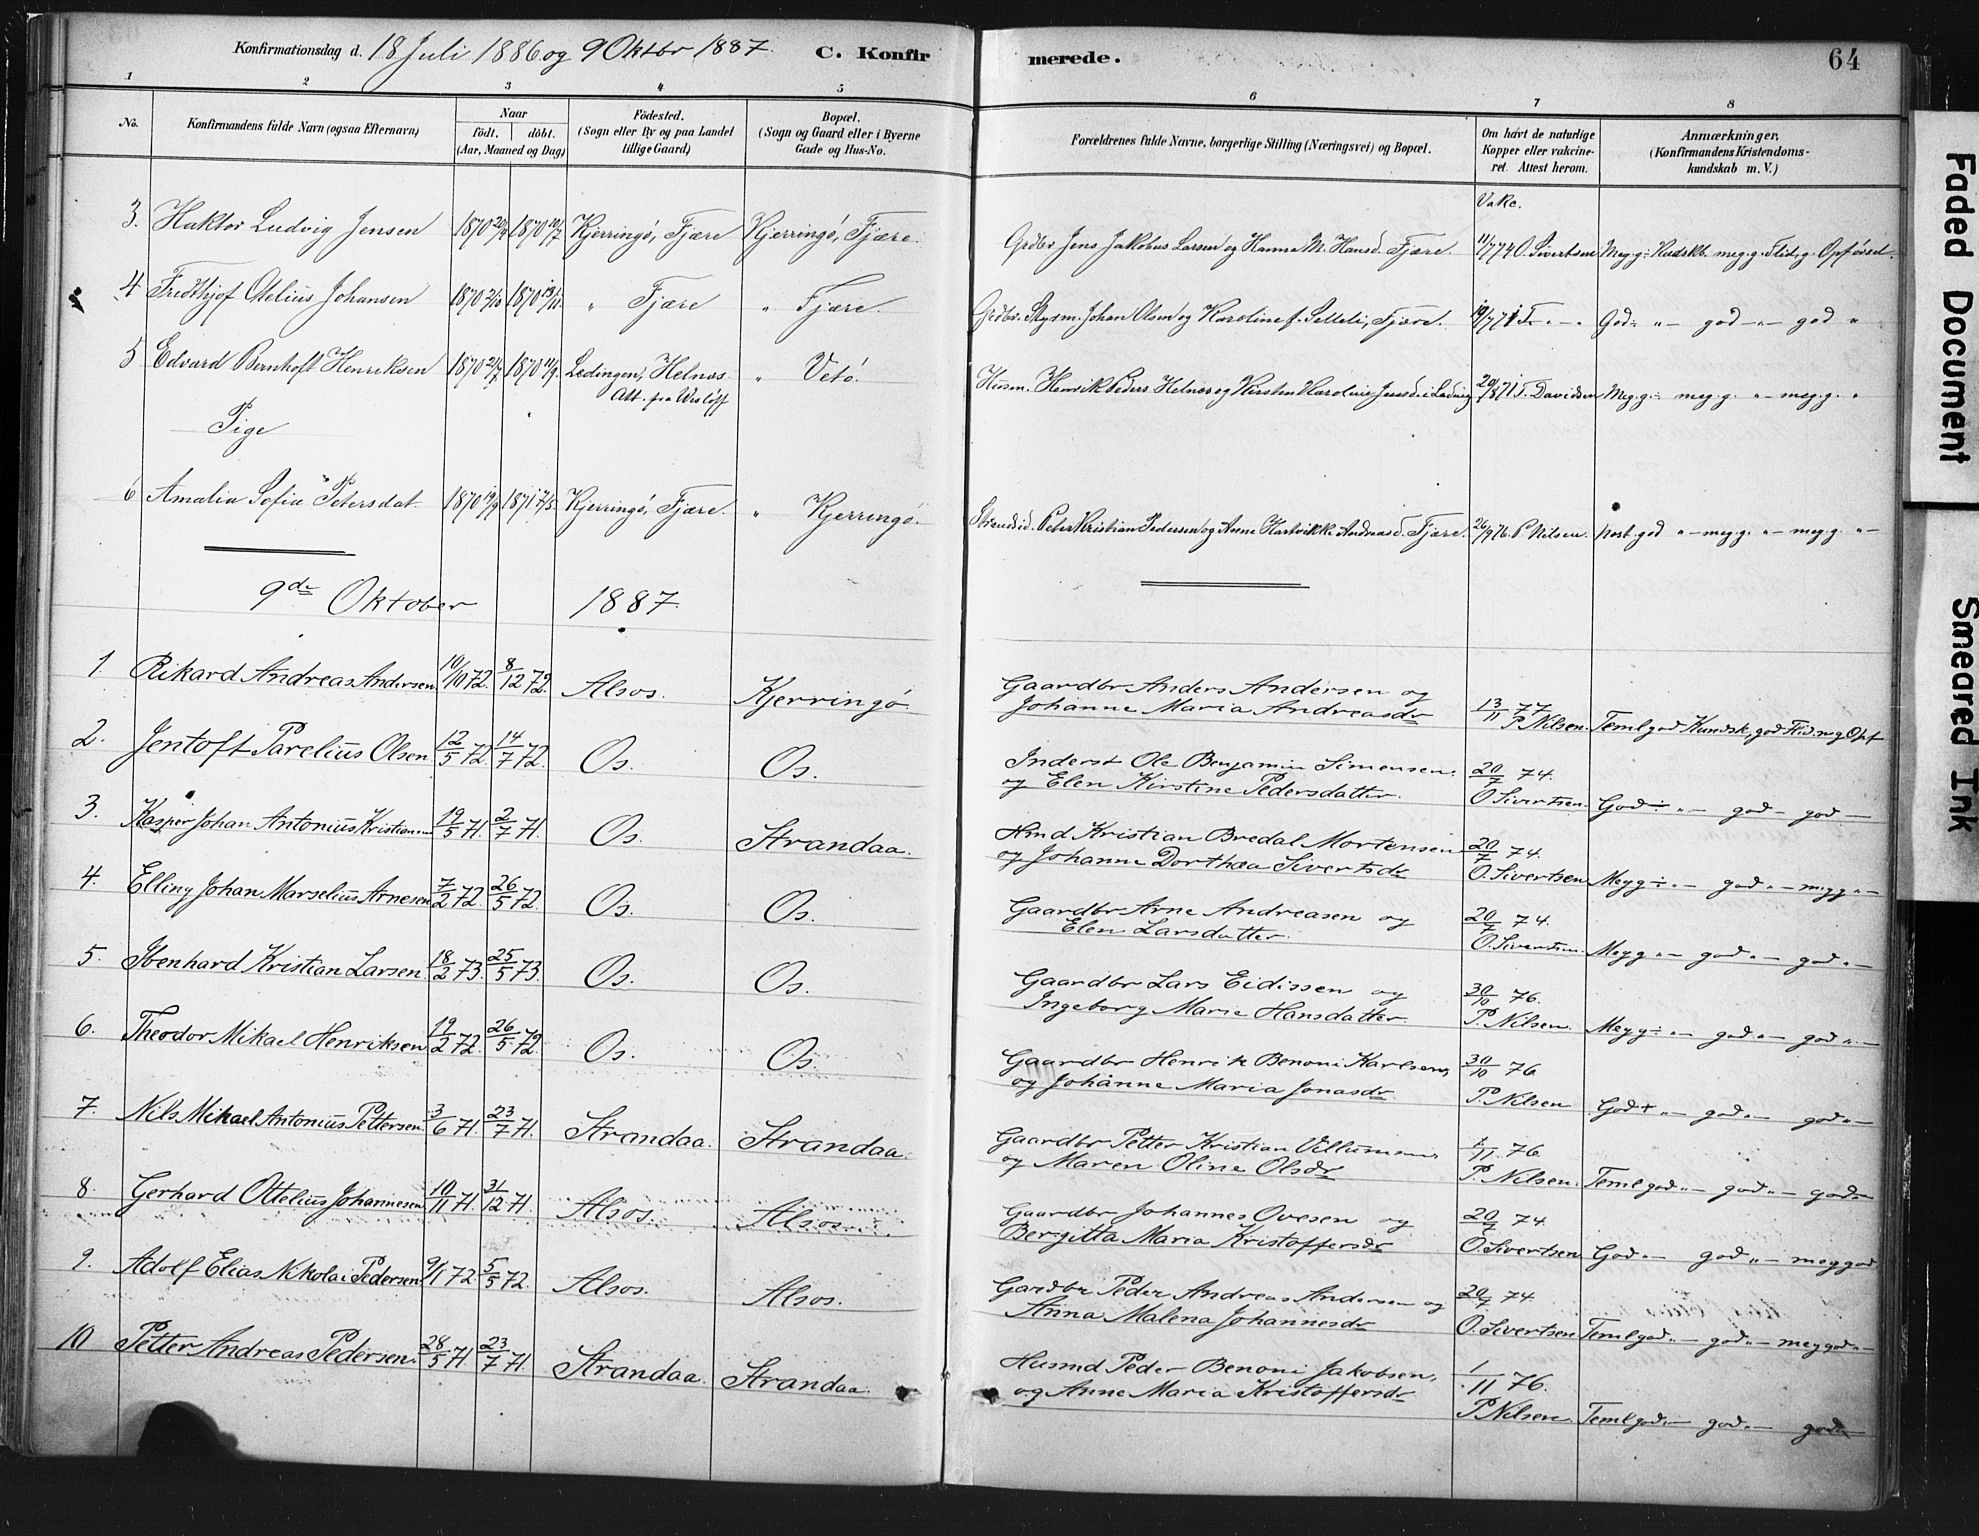 Konfirmationsdag d. 18 Juli 1886 og 9 Oktbr 1887. C. Konfirmerede. 64
1 2 3 4 5 6 7 8
No. Konfirmandens fulde Navn (ogsaa Efternavn) Naar födt. döbt. (Aar, Maaned og Dag) Födested. (Sogn eller By og paa Landet tillige Gaard) Bopæl. (Sogn og Gaard eller i Byerne Gade og Hus-No. Forældrenes fulde Navne, borgerlige Stilling (Næringsvei) og Bopæl. Om havt de naturlige Kopper eller vakcineret. Attest herom. Anmærkninger. (Konfirmandens Kristendomskundskab m. V.)
Vakc.
3. Haktor Ludvig Jensen 1870 20/4 1870 10/7 Kjerringö, Fjære Kjerringö, Fjære. Grdbr Jens Jakobus Larsen og Hanna M. Hansd. Fjære. 11/7 74 O. Sivertsen Meg.g. Kudskb. meg.g. Flid, g. Opförsel.
4 Fridthjof Otelius Johansen 1870 1870 " Fjære " Fjære. Grdbr. Styrm. Johan Olsen og Karoline f. Selleli, Fjære. God " god " god "
5 Edvard Bernhoft Henriksen 1870 1870 Lødingen, Helnes. Att. fra Wisløff " Vetö. Husm. Henrik Peders Helnes og Kirsten Karolius Jensd. i Lødingen 20/8 71 T. Davidsen Meg.g. meg.g. " meg.g. "
Pige
6 Amalia Sofia Petersdat. 1870 19/9 1871 7/5. Kjerringö, Fjære. " Kjerringö. Strandsid. Peter Kristian Pedersen og Anne Hartvikke Andreasd. Fjære. 26/9 76. P. Nilsen. god " meg.g. " meg.g. "
9de Oktober 1887.
1. Rikard Andreas Andersen 10/10 72. 8/12 72. Alsos. Kjerringö Gaardbr Anders Andersen og
Johanne Maria Andreasdr 13/11 77 P. Nilsen. Teml god Kundsk, god Flid. mg Opf
2. Jentoft Parelius Olsen 12/5 72. 14/7 72. Os. Os. Inderst Ole Benjamin Simensen.
og Elen Kirstine Pedersdatter. 20/7 74. O Sivertsen. God " god - god -
3. Kasper Johan Antonius Kristiansen 19/5 71. 2/7 71. Os. Strandaa. Hmd Kristian Bredal Mortensen
og Johanne Dorthea Sivertsdr 20/7 74. O. Sivertsen Meg g " god " meg g "
4. Elling Johan Marselius Arnesen 7/2 72. 26/5 72. Os. Os. Gaardbr Arne Andreasen og
Elen Larsdatter. 20/7 74. O. Sivertsen. Meg g " god " god "
5. Ibenhard Kristian Larsen. 18/2 73. 25/5 73. Os. Os. Gaardbr Lars Eidissen og
Ingeborg Marie Hansdatter. 30/10 76. P. Nilsen. Meg g " god " god "
6. Theodor Mikael Henriksen 19/2 72. 26/5 72. Os. Os. Gaardbr Henrik Benoni Karlsen,
og Johanne Maria Jonasdr 30/10 76 P. Nilsen God " god " god "
7. Nils Mikael Antonius Pettersen. 3/6 71. 23/7 71. Strandaa. Strandaa. Gaardbr Petter Kristian Villumsen,
og Maren Oline Olsdr 1/11 76. P. Nilsen. Teml god " god " god "
8. Gerhard Ottelius Johannesen 10/11 71. 31/12 71. Alsos. Alsos. Gaardbr Johannes Ovesen og
Bergitta Maria Kristoffersdr 20/7 74. O. Sivertsen God " god " meg god
9. Adolf Elias Nikolai Pedersen 9/1 72. 5/5 72. Alsos. Alsos. Gardbr Peder Andreas Andersen og
Anna Malena Johannesdr 20/7 74. O. Sivertsen Teml god " god " meg god "
10 Petter Andreas Pedersen. 28/5 71. 23/7 71. Strandaa. Strandaa. Husmd Peder Benoni Jakobsen,
og Anne Maria Kristoffersdr 1/11 76. P. Nilsen. Teml god " god " god
Faded Document
Smeared Ink